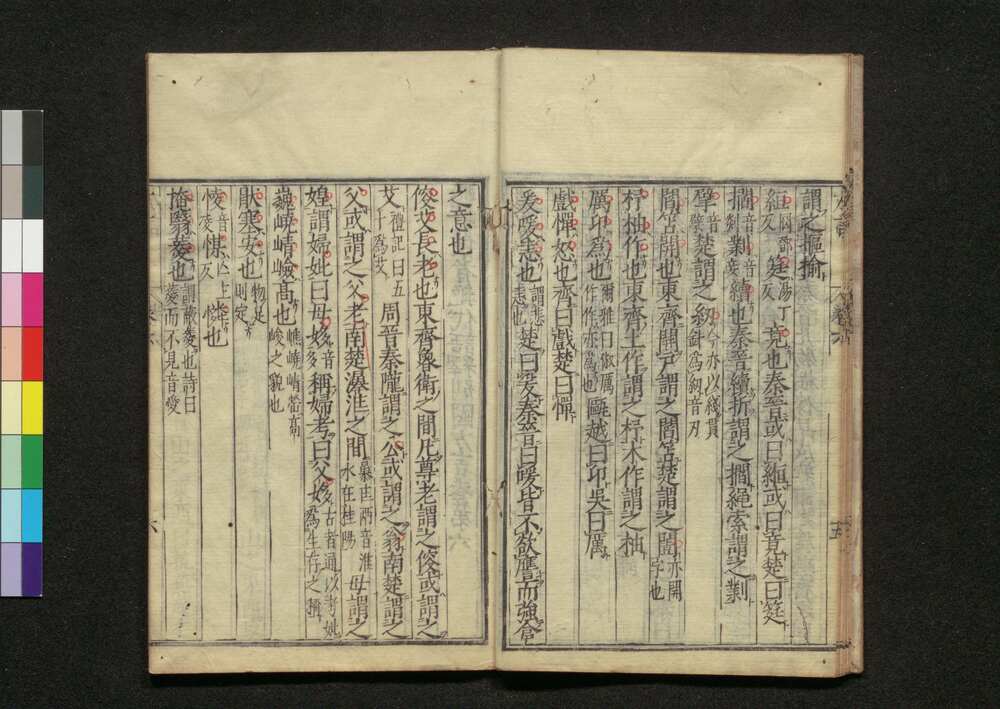 謂之摳揄
緪岡鄧反筳湯丁反竟也秦晉或曰緪或曰竟楚曰筳
擱音剡剿音妾續也秦晉續折謂之擱繩索謂之剿
擘音檗楚謂之紉今亦以綫貫針為紉音刃
閻苫開也東齊開戶謂之閻苫楚謂之闓亦開字也
杼柚作也東齊土作謂之杼木作謂之柚
厲卬為也爾雅曰俶厲作作亦為也甌越曰卬吳曰厲
戲憚怒也齊曰戲楚曰憚
爰暖恚也謂悲恚也楚曰爰秦晉曰暖皆不欲譍而強畣
之意也
傁艾長老也東齊魯衛之間凡尊老謂之傁或謂之
艾禮記曰五十為艾周晉秦隴謂之公或謂之翁南楚謂之
父或謂之父老南楚瀑洭之間暴匡兩音洭水在桂陽母謂之
媓謂婦妣曰母姼音多稱婦考曰父姼古者通以考妣為生存之稱
巍嶢崢嶮高也嶕嶢崢嶸高峻之貌也
猒塞安也物足則定
㥄音凌也
掩翳薆也謂蔽薆也詩曰薆而不見音愛